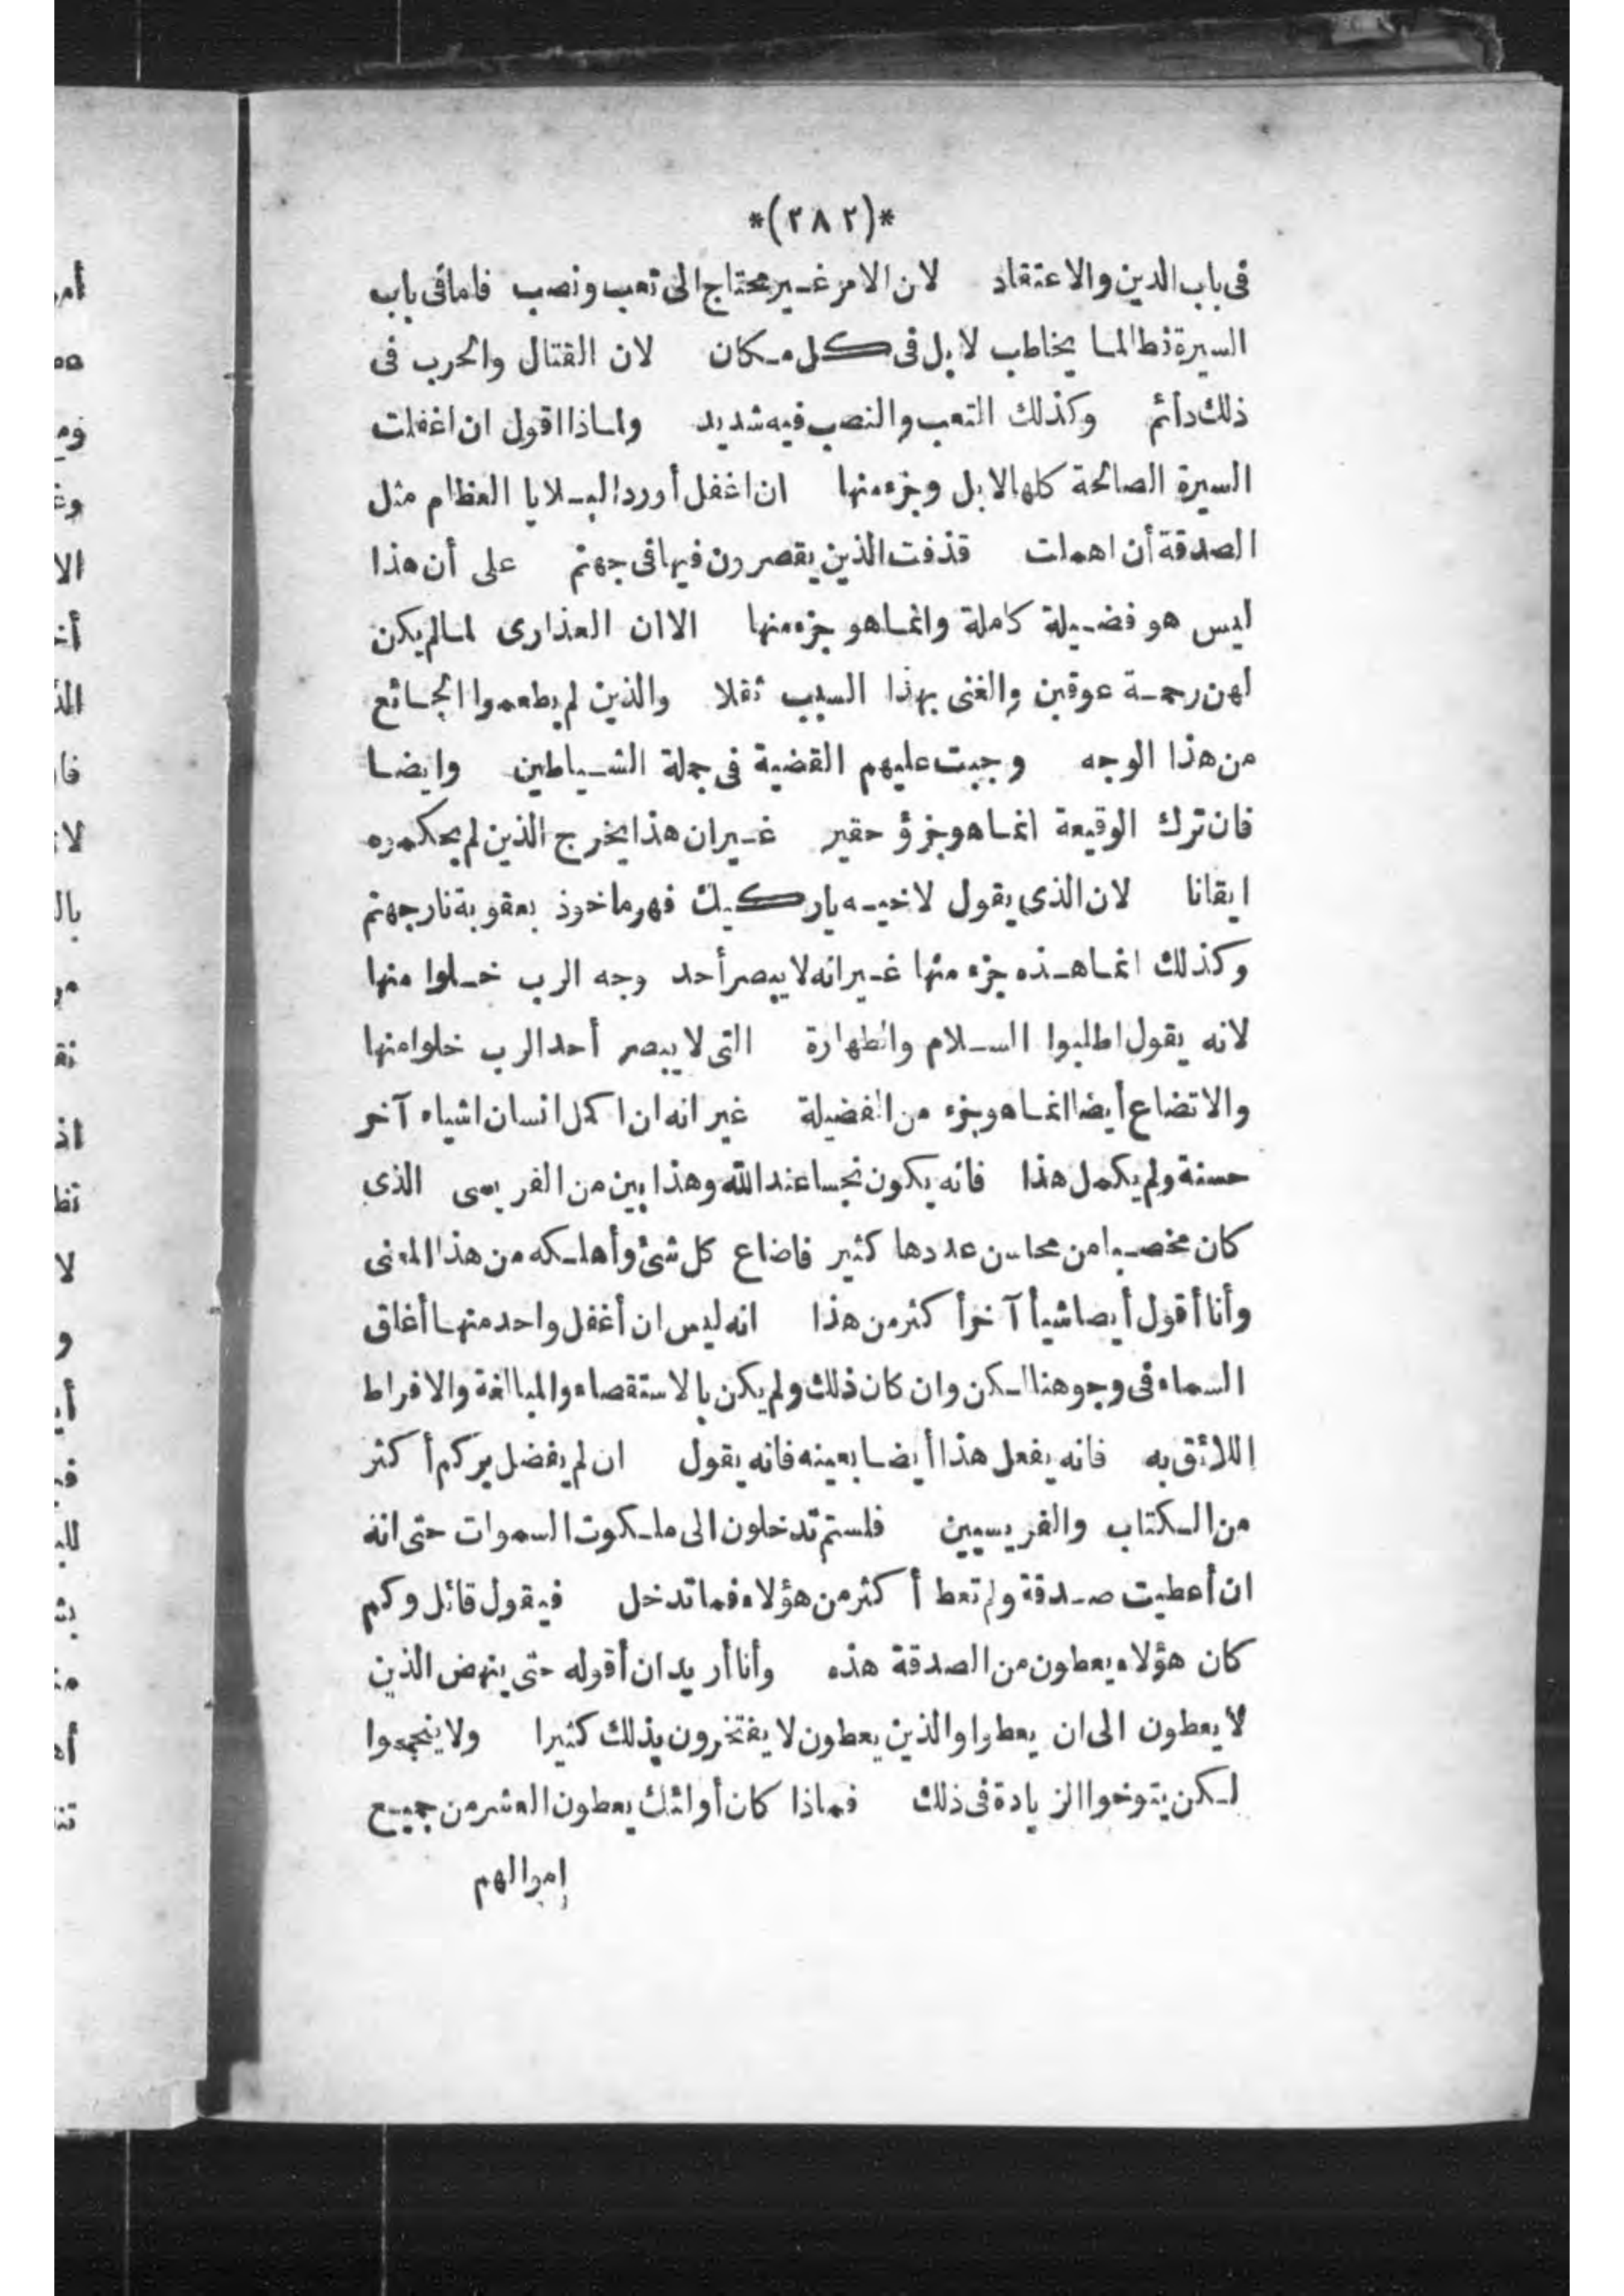 *(٢٨٢)*
فى باب الدين والاعتقاد لان الامر غير محتاج الى تعب ونصب فاما فى باب
السيرة فطالما يخاطب لا بل فى كل مكان لان القتال والحرب فى
ذلك دائم وكذلك التعب والنصب فيه شديد ولماذا اقول ان اغفلت
السيرة الصالحة كلها لا بل وجزء منها ان اغفل أورد البلايا العظام مثل
الصدقة أن اهملت قذفت الذين يقصرون فيها فى جهنم على أن هذا
ليس هو فضيلة كاملة وانما هو جزء منها الا ان العذارى لما لم يكن
لهن رحمة عوقبن والغنى بهذا السبب ثقلا والذين لم يطعموا الجائع
من هذا الوجه وجبت عليهم القضية فى جملة الشياطين وايضا
فان ترك الوقيعة انما هو جزؤ حقير غير ان هذا يخرج الذين لم يحكموه
ايقانا لان الذى يقول لاخيه يا ركيك فهو ماخوذ بعقوبة نار جهنم
وكذلك انما هذه جزء منها غير انه لا يبصر أحد وجه الرب خلوا منها
لانه يقول اطلبوا السلام والطهارة التى لا يبصر أحد الرب خلوا منها
والاتضاع أيضا انما هو جزء من الفضيلة غير انه ان اكمل انسان اشياء آخر
حسنة ولم يكمل هذا فانه يكون نجسا عند الله وهذا بين من الفريسى الذى
كان مخصبا من محاسن عددها كثير فاضاع كل شئ وأهلكه من هذا المعنى
وأنا أقول أيضا شيأ آخر أكثر من هذا انه ليس ان أغفل واحد منها أغلق
السماء فى وجوهنا لكن وان كان ذلك ولم يكن بالاستقصاء والمبالغة والافراط
اللائق به فانه يفعل هذا أيضا بعينه فانه يقول ان لم يفضل بركم أكثر
من الكتاب والفريسيين فلستم تدخلون الى ملكوت السموات حتى انه
ان أعطيت صدقة ولم تعط أكثر من هؤلاء فما تدخل فيقول قائل وكم
كان هؤلاء يعطون من الصدقة هذه وأنا أريد ان أقوله حتى ينهض الذين
لا يعطون الى ان يعطوا والذين يعطون لا يفتخرون بذلك كثيرا ولا ينجمعوا
لكن يتوخوا الزيادة فى ذلك فماذا كان أولئك يعطون العشر من جميع
اموالهم